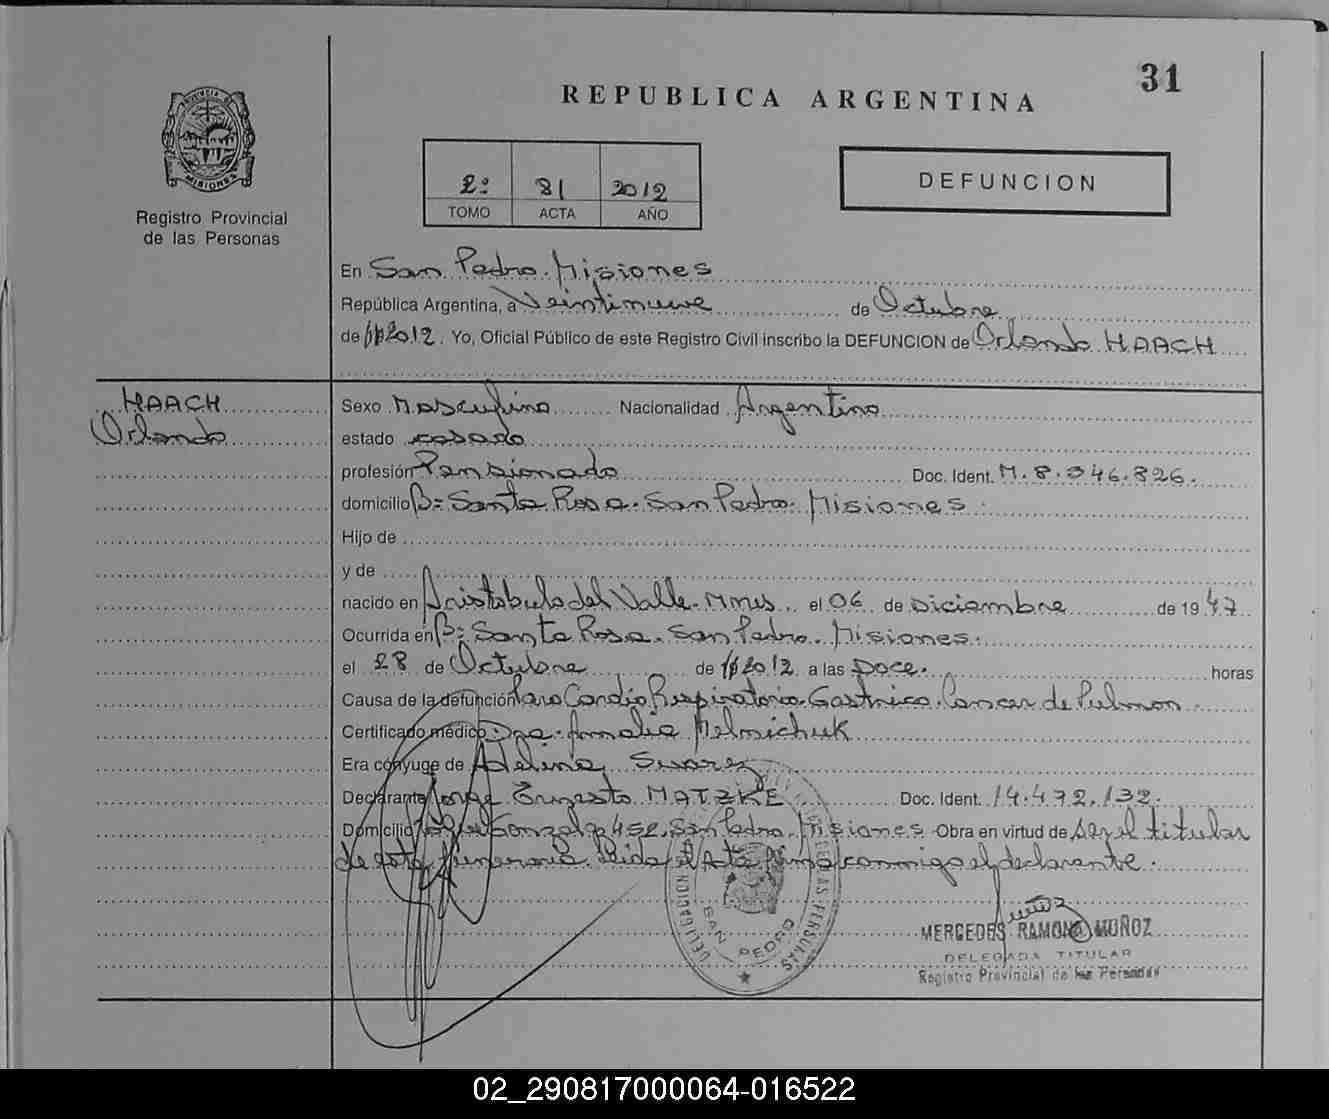 31
REPUBLICA ARGENTINA
PROVINCIA DE
MISIONES
Registro Provincial
de las Personas
2º 31 2012
TOMO ACTA AÑO
DEFUNCION
En San Pedro. Misiones
República Argentina, a Veintinueve de Octubre
de 2012. Yo, Oficial Público de este Registro Civil inscribo la DEFUNCION de Orlando HAACH
HAACH
Orlando
Sexo Masculino Nacionalidad Argentino
estado casado
profesión Pensionado Doc. Ident. M. 8.346.826.
domicilio Bº Santa Rosa. San Pedro. Misiones.
Hijo de
y de
nacido en Aristobulo del Valle. Mnes el 06 de Diciembre de 1947
Ocurrida en Bº Santa Rosa. San Pedro. Misiones.
el 28 de Octubre de 2012 a las Doce. horas
Causa de la defunción Paro Cardio Respiratorio. Gastrico. Cancer de Pulmon.
Certificado médico Dra. Amalia Melnichuk
Era cónyuge de Adelina Suarez
Declarante Jorge Ernesto MATZKE Doc. Ident. 14.472.132.
Domicilio Gonzalez 452. San Pedro. Misiones Obra en virtud de ser el titular
de esta funeraria. Leida el Acta firma conmigo el declarante.
DELEGACION
DE LAS PERSONAS
SAN PEDRO
MERCEDES RAMONA MUÑOZ
DELEGADA TITULAR
Registro Provincial de las Personas
02_290817000064-016522